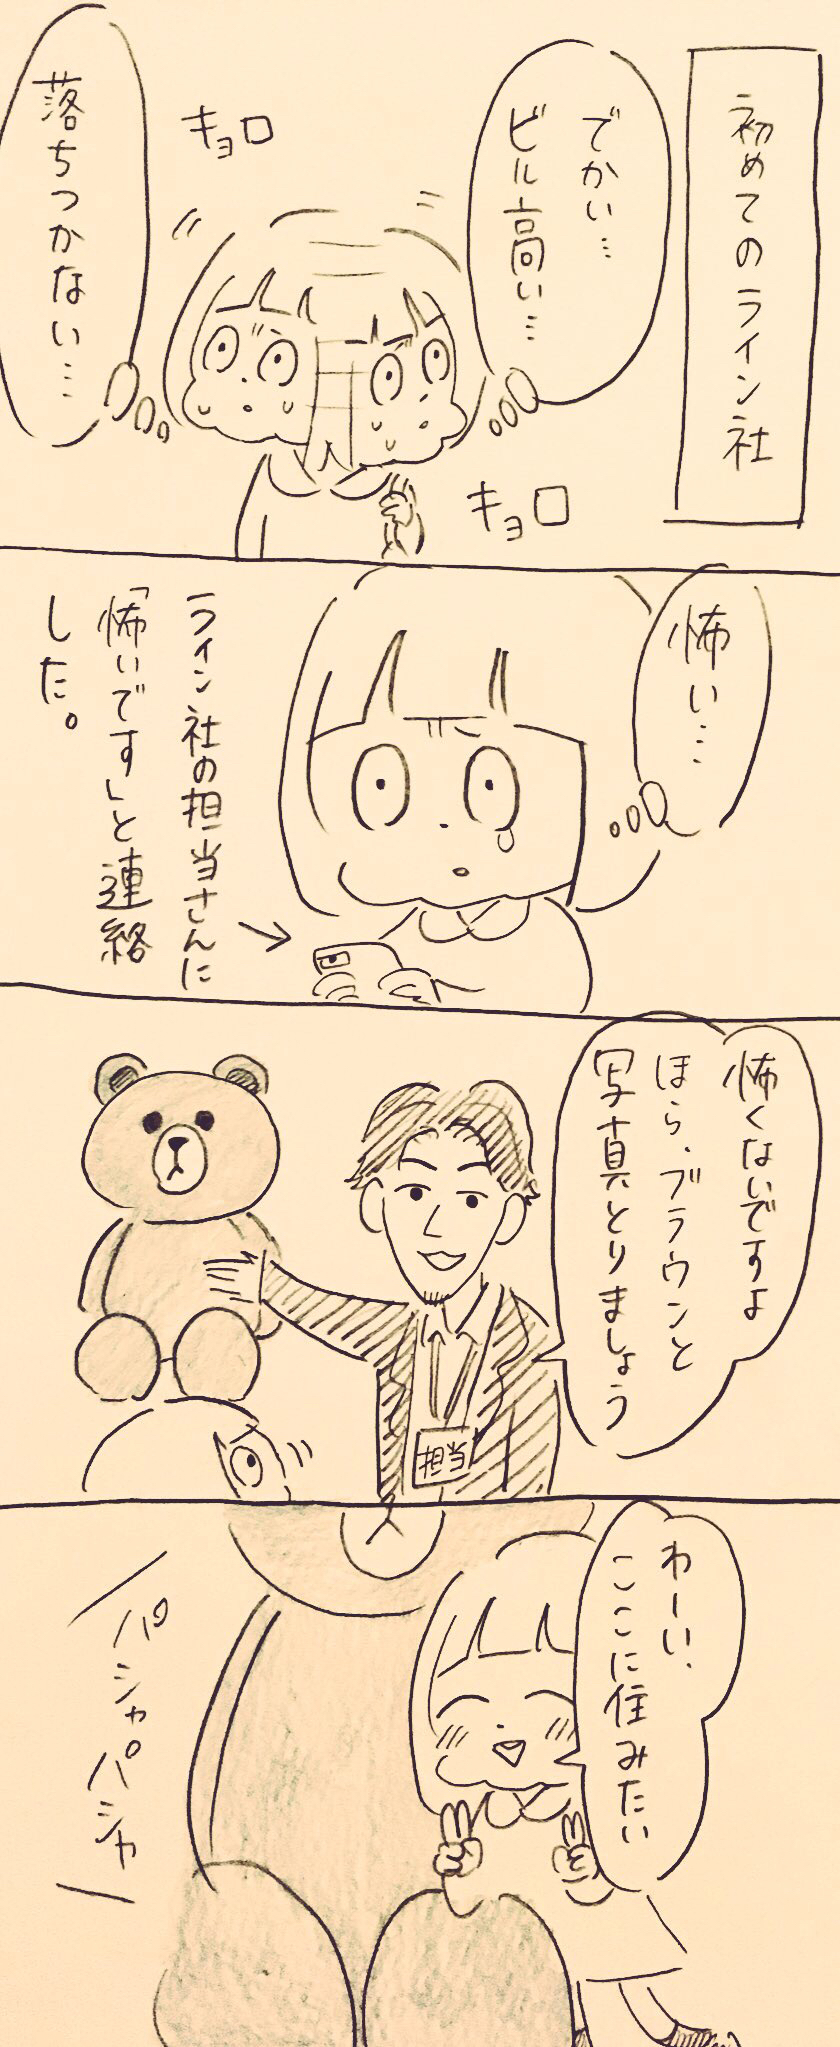 初めてのライン社
でかい…
ビル高い…
キョロ
落ちつかない…
キョロ
怖い…
ライン社の担当さんに
「怖いです」と連絡
した。
怖くないですよ
ほら、ブラウンと
写真とりましょう
担当
わーい、
ここに住みたい
パシャパシャ